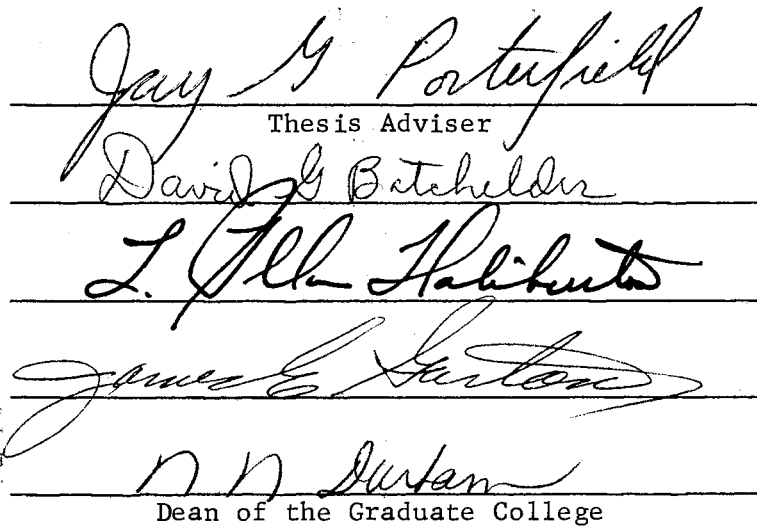 Jay G Porterfield
Thesis Adviser
David G Batchelder
L. Allan Haliburton
James E Garton
N N Durham
Dean of the Graduate College